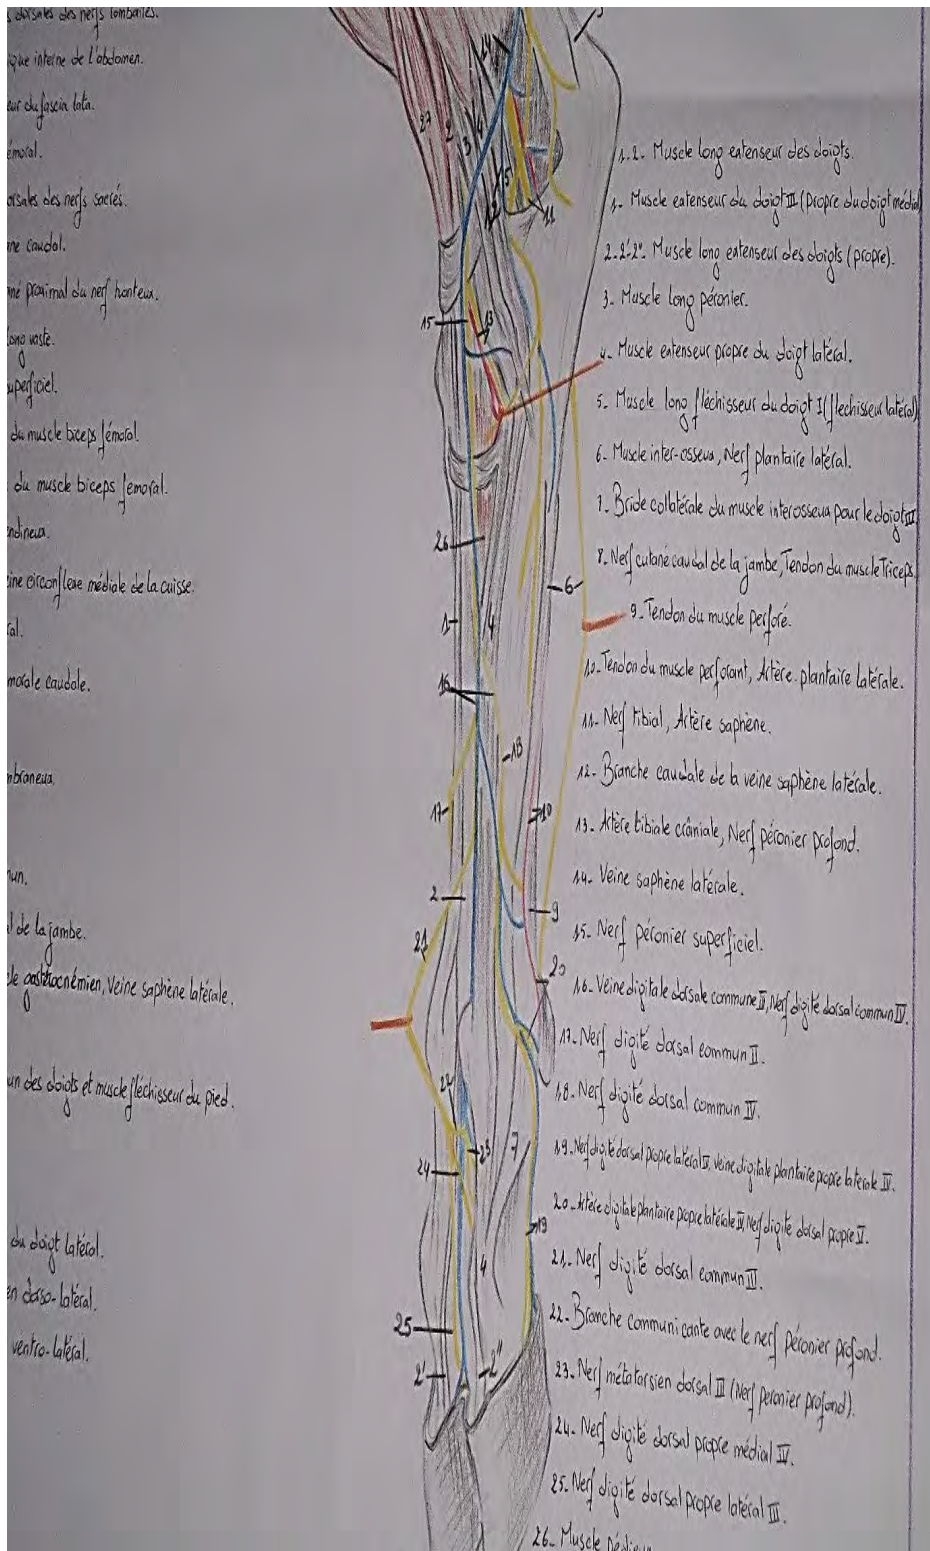 dorsales des nerfs lombaires.
que interne de l'abdomen.
eur du fascia lata.
émoral.
orsales des nerfs sacrés.
né caudal.
né proximal du nerf honteux.
long vaste.
uperficiel.
du muscle biceps fémoral.
du muscle biceps femoral.
ndineux.
ine circonflexe médiale de la cuisse.
ral.
morale caudale.
mbraneux
mun.
l de la jambe.
le gastrocnémien, Veine saphène latérale.
un des doigts et muscle fléchisseur du pied.
du doigt latéral.
en dorso-latéral.
ventro-latéral.
27
2
3
4
14
5
12
11
15
13
26
1
4
16
17
18
2
10
9
6
21
20
22
23
24
7
19
4
25
2'
2"
1.2- Muscle long extenseur des doigts.
1- Muscle extenseur du doigt III (Propre du doigt médial
2-2'-2"- Muscle long extenseur des doigts (propre).
3- Muscle Long péronier.
4- Muscle extenseur propre du doigt latéral.
5- Muscle long fléchisseur du doigt I (flechisseur latéral)
6- Muscle inter-osseux, Nerf plantaire latéral.
7- Bride collatérale du muscle interosseux pour le doigt III
8- Nerf cutané caudal de la jambe, Tendon du muscle Triceps
9- Tendon du muscle perforé.
10- Tendon du muscle perforant, Artère plantaire latérale.
11- Nerf tibial, Artère saphène.
12- Branche caudale de la veine saphène latérale.
13- Artère tibiale crâniale, Nerf péronier profond.
14- Veine saphène latérale.
15- Nerf péronier superficiel.
16- Veine digitale dorsale commune II, Nerf digité dorsal commun IV.
17- Nerf digité dorsal commun II.
18- Nerf digité dorsal commun IV.
19- Nerf digité dorsal propre latéral IV, Veine digitale plantaire propre latérale IV.
20- Artère digitale plantaire propre latérale IV, Nerf digité dorsal propre V.
21- Nerf digité dorsal commun III.
22- Branche communicante avec le nerf péronier profond.
23- Nerf métatarsien dorsal III (Nerf péronier profond).
24- Nerf digité dorsal propre médial IV.
25- Nerf digité dorsal propre latéral III.
26- Muscle Pédieux